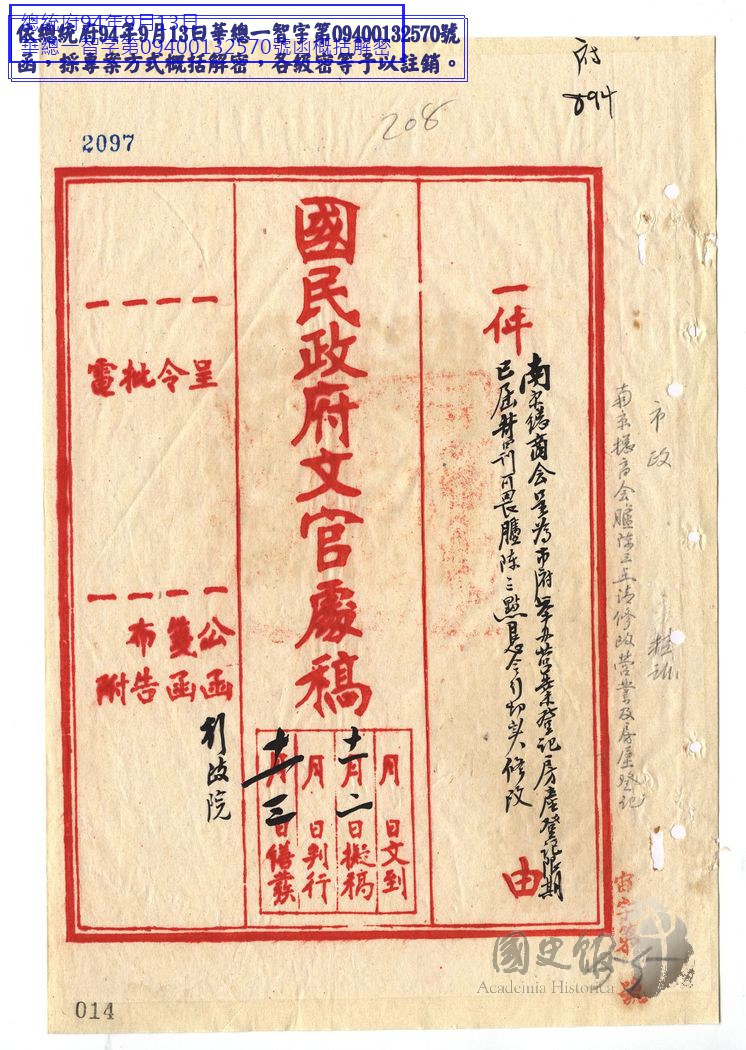 總統府94年9月13日
華總一智字第09400132570號函概括解密
依總統府94年9月13日華總一智字第09400132570號
函，採專案方式概括解密，各級密等予以註銷。
府
894
208
2097
市政
南京總商会臚陳三点請修改營業及房屋登記
一件
南京總商会呈為市府舉办營業登記房產登記限期
已屆
臚陳三點
修改
由
國民政府文官處稿
月 日文到
十一月二日擬稿
月 日判行
十一月三日繕發
一呈
一令
一批
一電
一公函
一箋函
一布告
一附
行政院
宙字第
號
國史館
Academia Historica
014